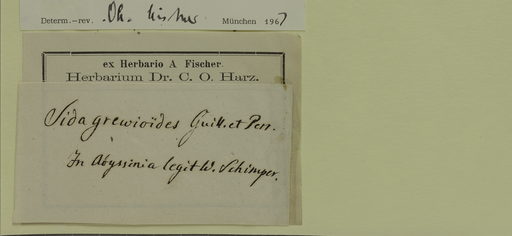 Determ.—rev. München 1967
ex Herbario A Fischer.
Herbarium Dr. C. O. Harz.
Sida grewioïdes Guill. et Perr.
In Abyssinia legit W. Schimper.